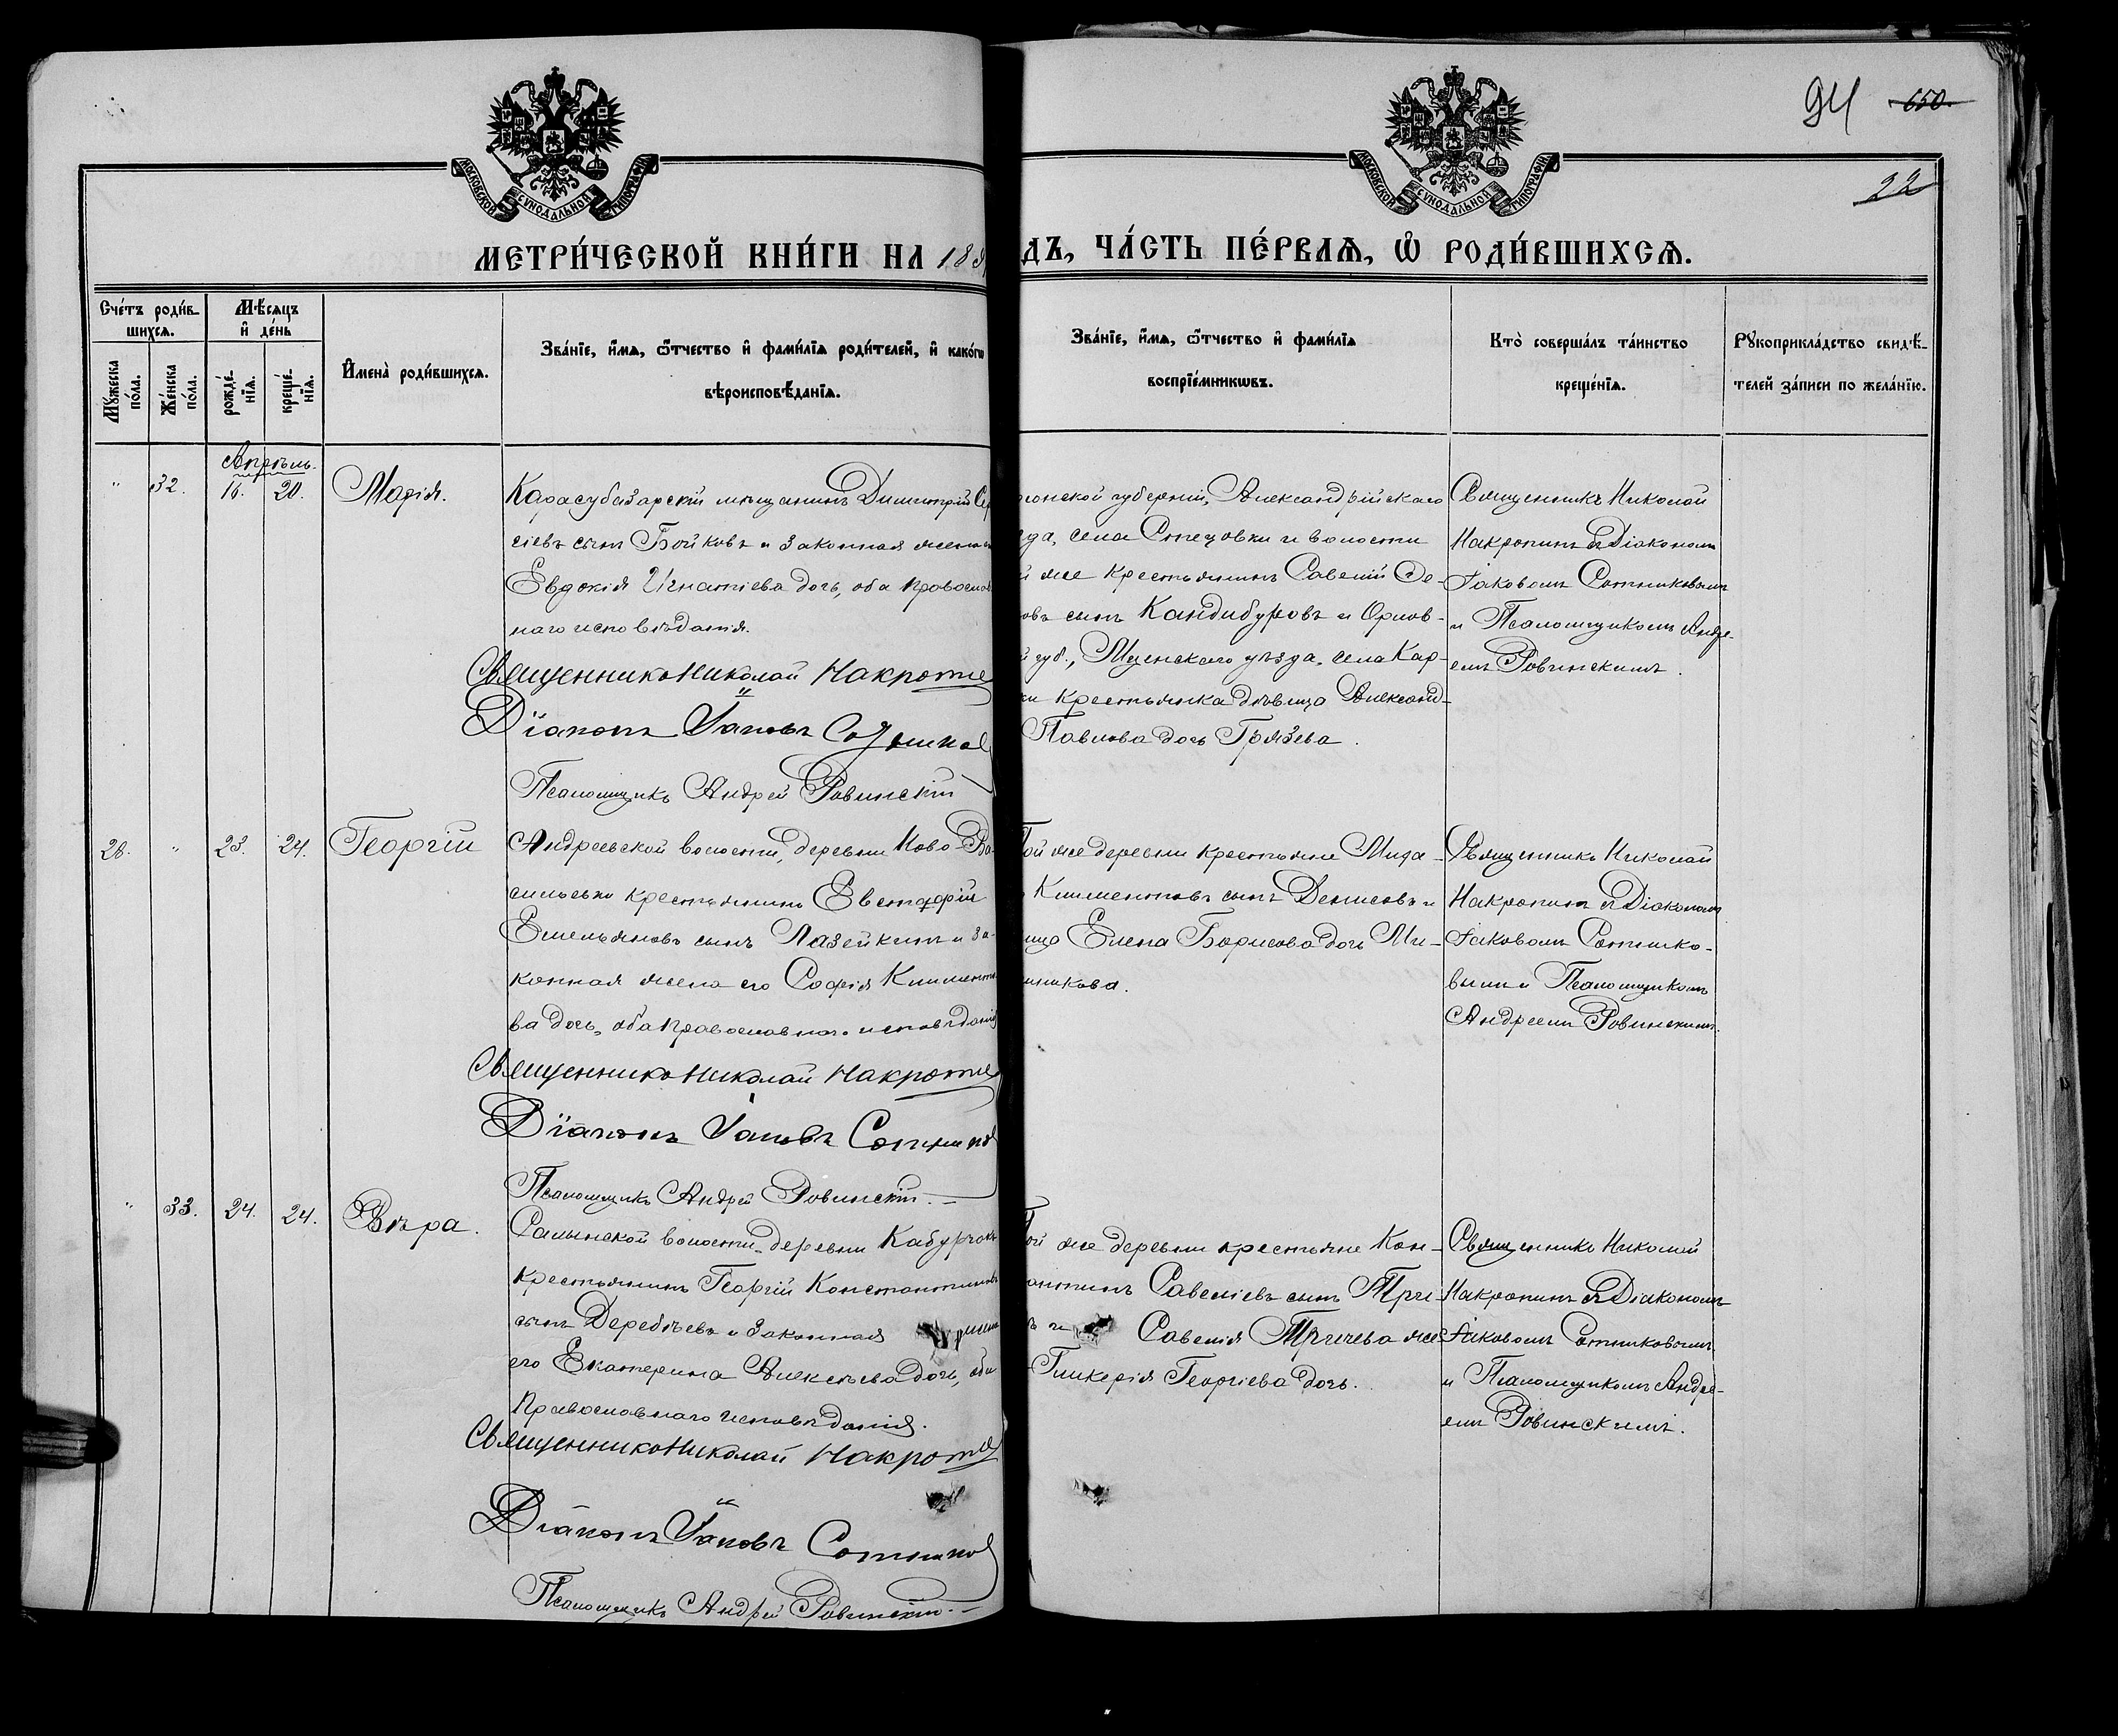 94 650
22
МОСКОВСКОЙ СѴНОДАЛЬНОЙ ТИПОГРАФІИ
МОСКОВСКОЙ СѴНОДАЛЬНОЙ ТИПОГРАФІИ
МЕТРИ́ЧЕСКОЙ КНИ́ГИ НА 189
ДЪ, ЧА́СТЬ ПЕ́РВАѦ, Ѡ҆ РОДИ́ВШИХСѦ.
Сче́тъ роди́в-
шихсѧ.
Мꙋ́жеска по́ла.
Же́нска по́ла.
Мѣ́сѧцъ
и҆ де́нь
рожде́-
нїѧ.
креще́-
нїѧ.
И҆мена̀ роди́вшихсѧ.
Зва́нїе, и҆́мѧ, ѻ҆́тчество и҆ фами́лїѧ роди́телей, и҆ како́гѡ
вѣроисповѣ́данїѧ.
Зва́нїе, и҆́мѧ, ѻ҆́тчество и҆ фами́лїѧ
воспрїе́мникѡвъ.
Кто̀ соверша́лъ та́инство
креще́нїѧ.
Рꙋкоприкла́дство свидѣ́-
телей за́писи по жела́нїю.
Апрѣль.
" 32. 16. 20. Марія.
Карасубазарскій мѣщанинъ Димитрій Сер
гіевъ сынъ Бойковъ и законная жена
Евдокія Игнатіева дочь, оба православ
наго исповѣданія.
Священникъ Николай Накропин
Діаконъ Іаковъ Сотников
Псаломщикъ Андрей Ровинскій
сонской губерніи, Александрійскаго
да, села Стецовки и волости
й же крестьянинъ Савелій Се-
овъ сынъ Кандибуровъ и Орлов-
й губ., Мценскаго уѣзда, села Кар-
ки крестьянка дѣвица Александ-
Павлова дочь Грязева.
Священникъ Николай
Накропинъ съ Діакономъ
Іаковомъ Сотниковымъ
и Псаломщикомъ Андре-
емъ Ровинскимъ.
28. " 23. 24. Георгій
Андреевской волости, деревни Ново-Ва
сильевки крестьянинъ Евстафій
Емельяновъ сынъ Лазейкинъ и за-
конная жена его Софія Климентье
ва дочь, оба православнаго исповѣданія
Священникъ Николай Накропин
Діаконъ Іаковъ Сотников
Псаломщикъ Андрей Ровинскій
Той же деревни крестьяне Мида-
Климентовъ сынъ Денисовъ и
ица Елена Борисова дочь Ми-
шникова.
Священникъ Николай
Накропинъ съ Діакономъ
Іаковомъ Сотнико-
вымъ и Псаломщикомъ
Андреемъ Ровинскимъ.
" 33. 24. 24. Вѣра.
Салынской волости, деревни Кабурчак
крестьянинъ Георгій Константиновъ
сынъ Деребѣевъ и законная жена
его Екатерина Алексѣева дочь, оба
православнаго исповѣданія.
Священникъ Николай Накропин
Діаконъ Іаковъ Сотников
Псаломщикъ Андрей Ровинскій
Той же деревни крестьяне Кон-
антинъ Савеліевъ сынъ Три
ъ и Савелія Тричева же
Гликерія Георгіева дочь.
Священникъ Николай
Накропинъ съ Діакономъ
Іаковомъ Сотниковымъ
и Псаломщикомъ Андре-
емъ Ровинскимъ.